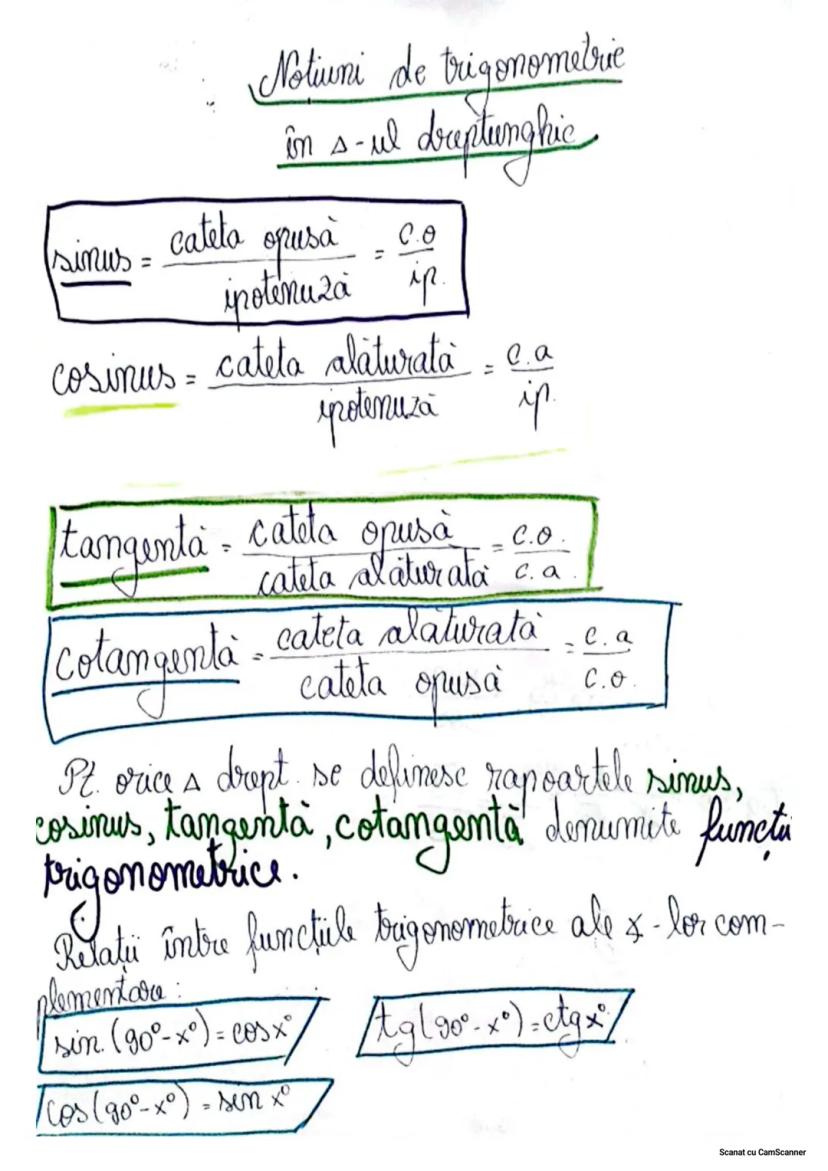 Notiuni de trigonometrie
în Δ-ul dreptunghic.
sinus = cateta opusă / ipotenuză = c.o / ip.
cosinus = cateta alăturată / ipotenuză = c.a / ip.
tangentă = cateta opusă / cateta alăturată = c.o. / c.a.
cotangentă = cateta alăturată / cateta opusă = c.a / c.o.
Pt. orice Δ drept. se definesc rapoartele sinus,
cosinus, tangentă, cotangentă denumite funcții
trigonometrice.
Relații între funcțiile trigonometrice ale ∡-lor com-
plementare:
sin. (90°-x°) = cos x° tg(90°-x°) = ctg x°
cos(90°-x°) = sin x°
Scanat cu CamScanner